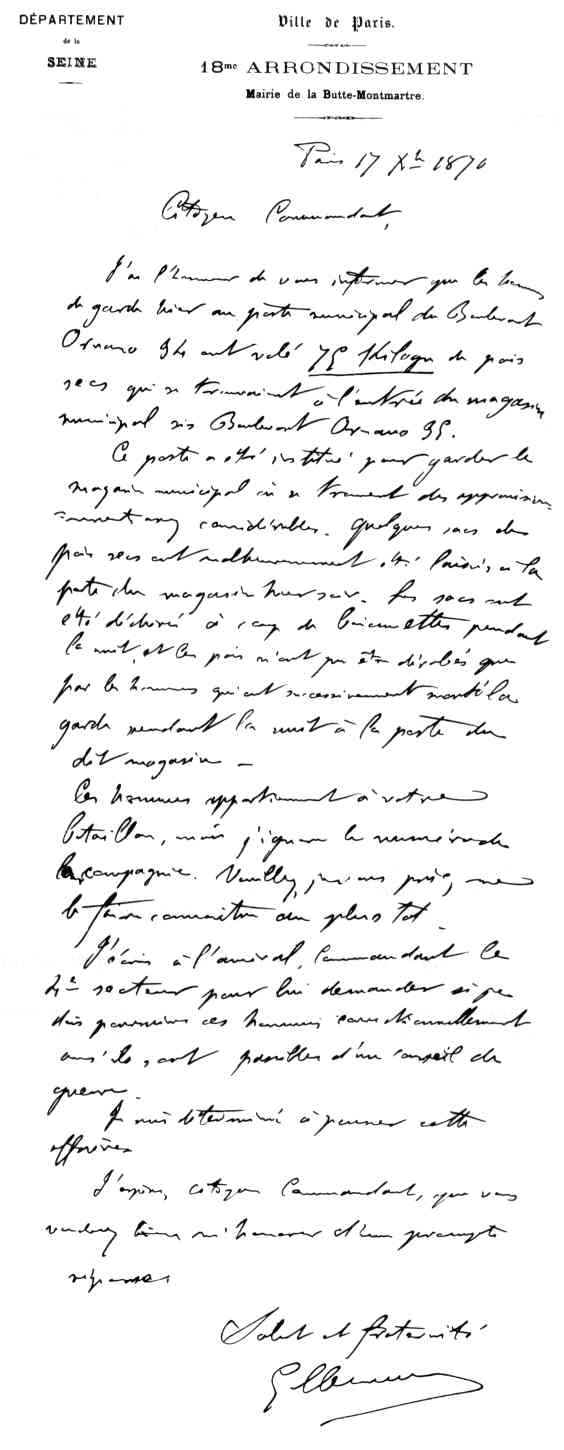 DÉPARTEMENT
de la
SEINE
Ville de Paris.
18me ARRONDISSEMENT
Mairie de la Butte-Montmartre.
Paris 17 Xbre 1870
Citoyen Commandant,
J'ai l'honneur de vous informer que les hommes
de garde hier au poste municipal du Boulevart
Ornano 34 ont volé 75 Kilogr de pois
secs qui se trouvaient à l'entrée du magasin
municipal sis Boulevart Ornano 35.
Ce poste a été institué pour garder le
magasin municipal où se trouvent des approvision
-nements considérables. Quelques sacs de
pois secs ont malheureusement été laissés à la
porte du magasin hier soir. Les sacs ont
été déchirés à coup de baionnettes pendant
la nuit, et les pois n'ont pu être dérobés que
par les hommes qui ont successivement monté la
garde pendant la nuit à la porte du
dit magasin –
Ces hommes appartiennent à votre
bataillon, mais j'ignore le numéro de
la compagnie. Veuillez, je vous prie, me
le faire connaître au plus tot.
J'écris à l'amiral, Commandant le
4e secteur pour lui demander si je
dois poursuivre ces hommes correctionnellement
ou s'ils sont passibles d'un conseil de
guerre.
Je suis déterminé à pousser cette
affaire.
J'espère, citoyen Commandant, que vous
voudrez bien m'honorer d'une prompte
réponse.
Salut et fraternité
G Clemenceau